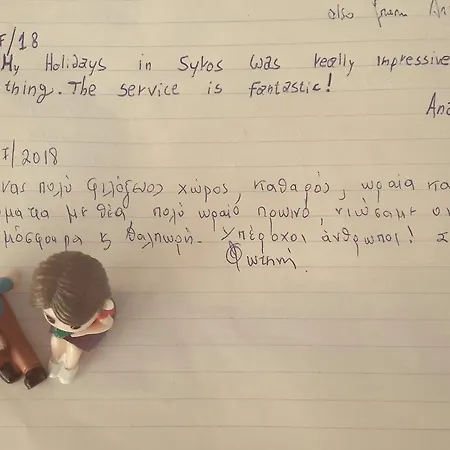 also from An
/18
My Holidays in Syros was really inpressive
thing. The service is fantastic!
Ana
/2018
νας πολύ φιλόξενος χώρος, καθαρός, ωραία
ματια με θέα, πολύ ωραίο πρωινό, νιώσαμε
μόσφαιρα & θαλπωρή. Υπέροχοι άνθρωποι!
Φωτεινή